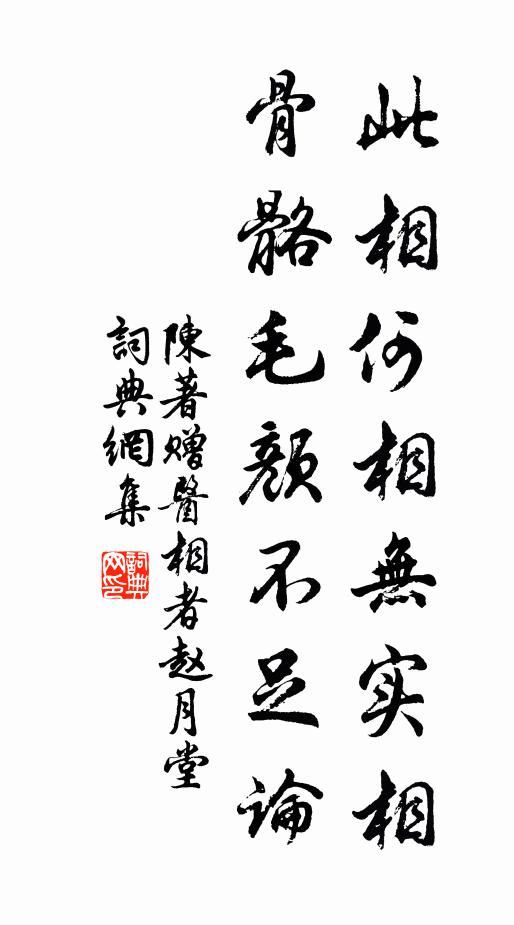 此相何相無实相
骨骼毛颜不足論
陳著赠醫相者赵月堂
詞典網集
詞典
网印